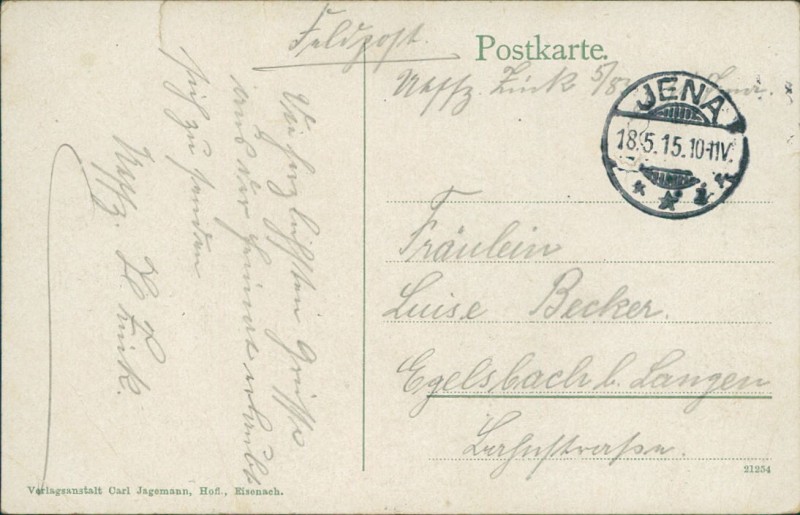 Feldpost.
Postkarte.
Uffz. Zink 5/8
JENA
18.5.15.10-11V.
Die herzlichsten Grüße
aus der Heimat erlaubt
sich zu senden
Uffz. Zink.
Fräulein
Luise Becker.
Egelsbach b. Langen
Bahnstraße.
21254
Verlagsanstalt Carl Jagemann, Hofl., Eisenach.